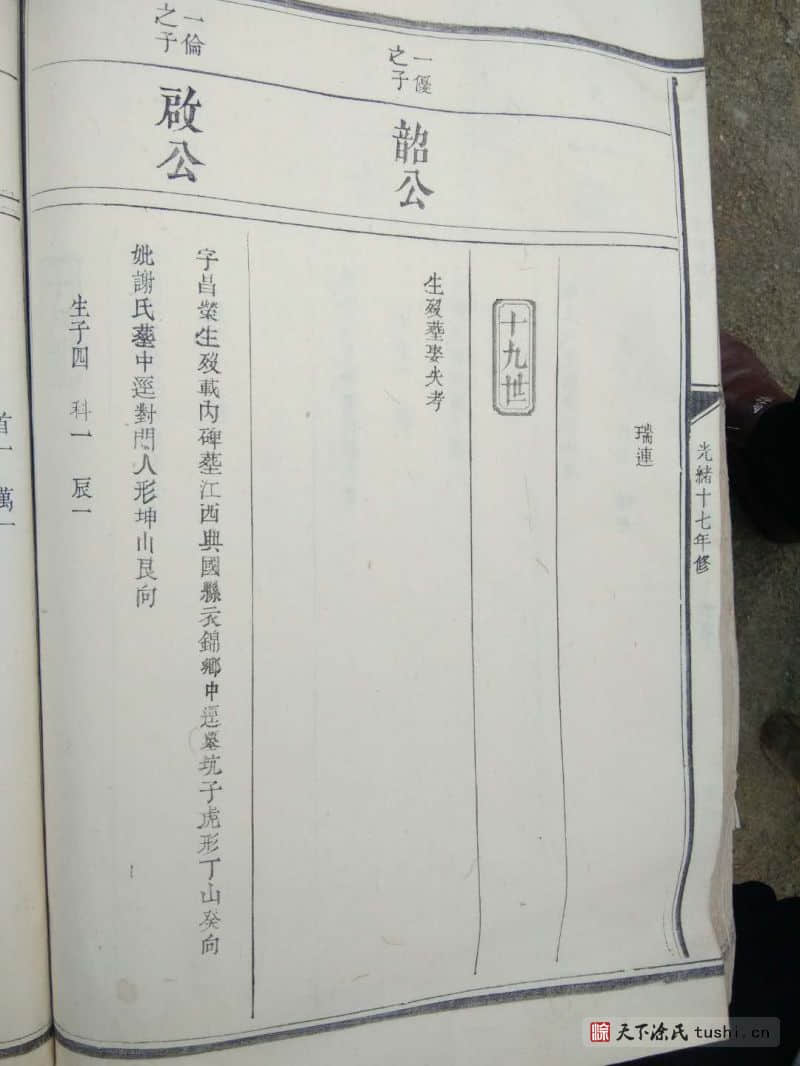 光緒十七年修
瑞連
十九世
一優
之子
韶公
生歿塟娶失考
一倫
之子
啟公
字昌榮生歿載內碑塟江西興國縣衣錦鄉中逕墓坑子虎形丁山癸向
妣謝氏塟中逕對門人形坤山艮向
生子四 科一 辰一
首一 萬一
天下涂氏 tushi.cn